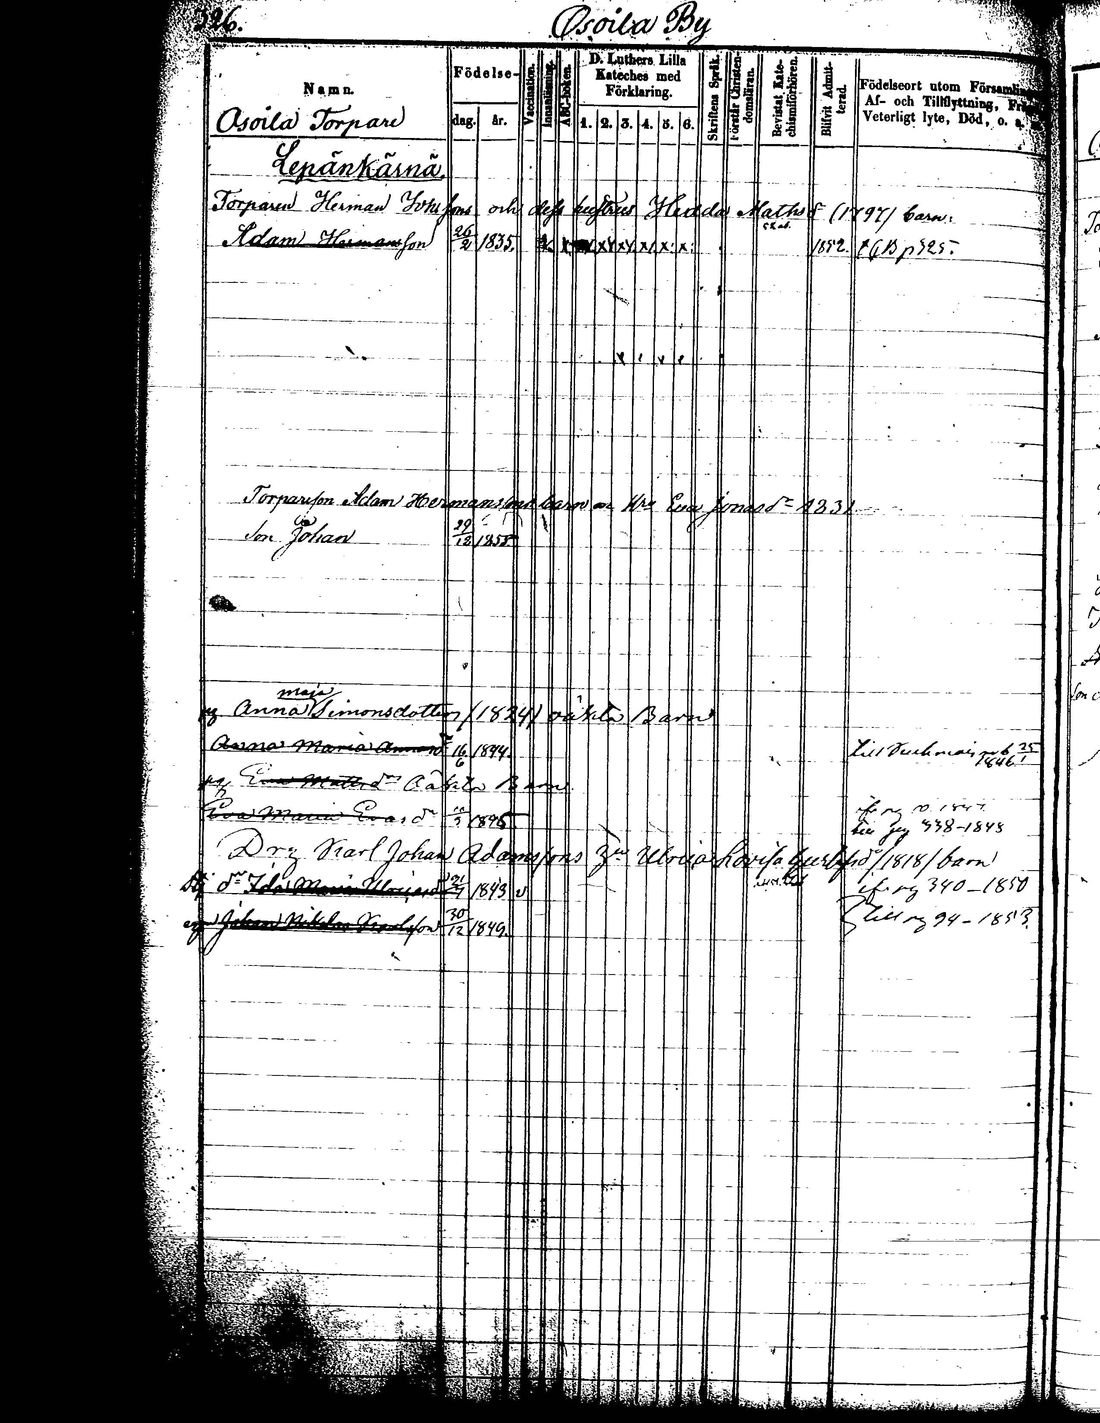 326.
Osoila By
Namn.
Födelse-
dag. år.
Vaccination.
Innanläsning.
ABC-boken.
D. Luthers Lilla
Kateches med
Förklaring.
1. 2. 3. 4. 5. 6.
Skriftens Språk.
Förstår Christen-
domsläran.
Bevistat Kate-
chismiförhören.
Blifvit Admit-
terad.
Födelseort utom Församling
Af- och Tillflyttning,
Veterligt lyte, Död, o. s.
Osoila Torpare
Lepänkärnä
Torparen Herman Johssons och dess hustrus Hedda Mathsdr (1797) barn:
Adam Hermansson 26/2 1835. x x x x x x 1852.
Torpareson Adam Hermanssons barn m Hru Eva Jonasdr 1831
Son Johan 29/12 1855
maja
pg Anna Simonsdotters (1824) oäkta Barn
Anna Maria Annasdr 16/6 1844. till 25/1 1846
pg Eva Mattsdrs Oäkta Barn
Eva Maria Evasdr 1845
338-1848
Drg Karl Johan Adamssons Ulrica Lovisa Gustafsdr (1818) barn
dr Ida Maria 1843 v 340-1850
Johan Karlsson 30/12 1849. till 94-1853.